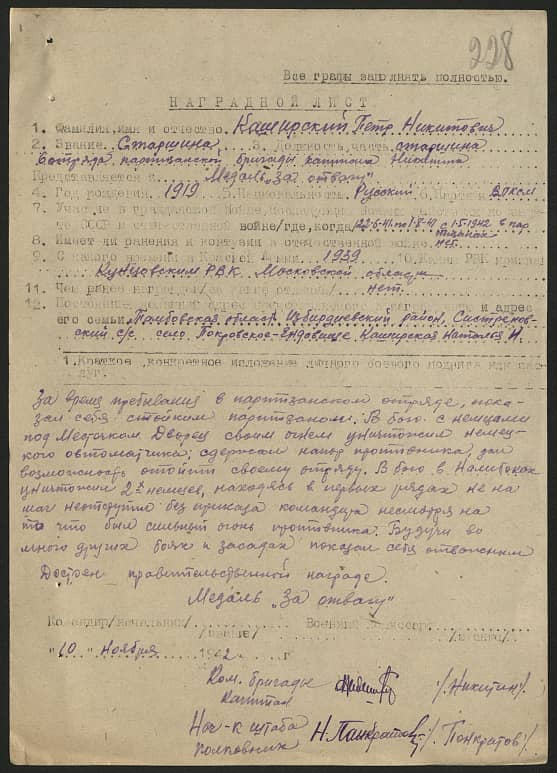 228
Все графы заполнять полностью.
НАГРАДНОЙ ЛИСТ
1. Фамилия, имя и отчество Каширский Петр Никитович
2. Звание Старшина 3. Должность, часть старшина
отряда партизанской бригады капитана Никитина
Представляется к Медаль "За отвагу"
4. Год рождения 1919 5. Национальность Русский 6. ВЛКСМ
7. Участие в гражданской войне,
СССР и отечественной войне /где, когда/ 22-6-41 по 1-8-41 с 1-5-1942 в пар
тизанах
8. Имеет ли ранения и контузии в отечественной войне нет.
9. С какого времени в Красной Армии 1939 10. Каким РВК призван
Кунцовским РВК Московской области
11. Чем ранее награжден нет.
12. Постоянный домашний адрес и адрес
его семьи Тамбовская область Избердиевский район,
с/с село Покровское-Ендовище Каширская Наталья И.
1. Краткое, конкретное изложение личного боевого подвига или зас-
луг.
За время пребывания в партизанском отряде, пока-
зал себя стойким партизаном. В бою с немцами
под Местечком Дворец своим огнем уничтожил немец-
кого автоматчика, сдержал напор противника, дал
возможность отойти своему отряду. В бою в Налибоках
уничтожил 2х немцев, находясь в первых рядах не на
шаг неотступил без приказа командира несмотря на
то что был сильный огонь противника. Будучи во
много других боях и засадах показал себя отважным
Достоен правительственной награде.
Медаль "За отвагу"
Командир/начальник/ Военный комиссар
/звание/
"10" ноября 1942 г
Ком. бригады
капитан /Никитин/
Нач-к штаба
полковник Н. Панкратов /Понкратов/